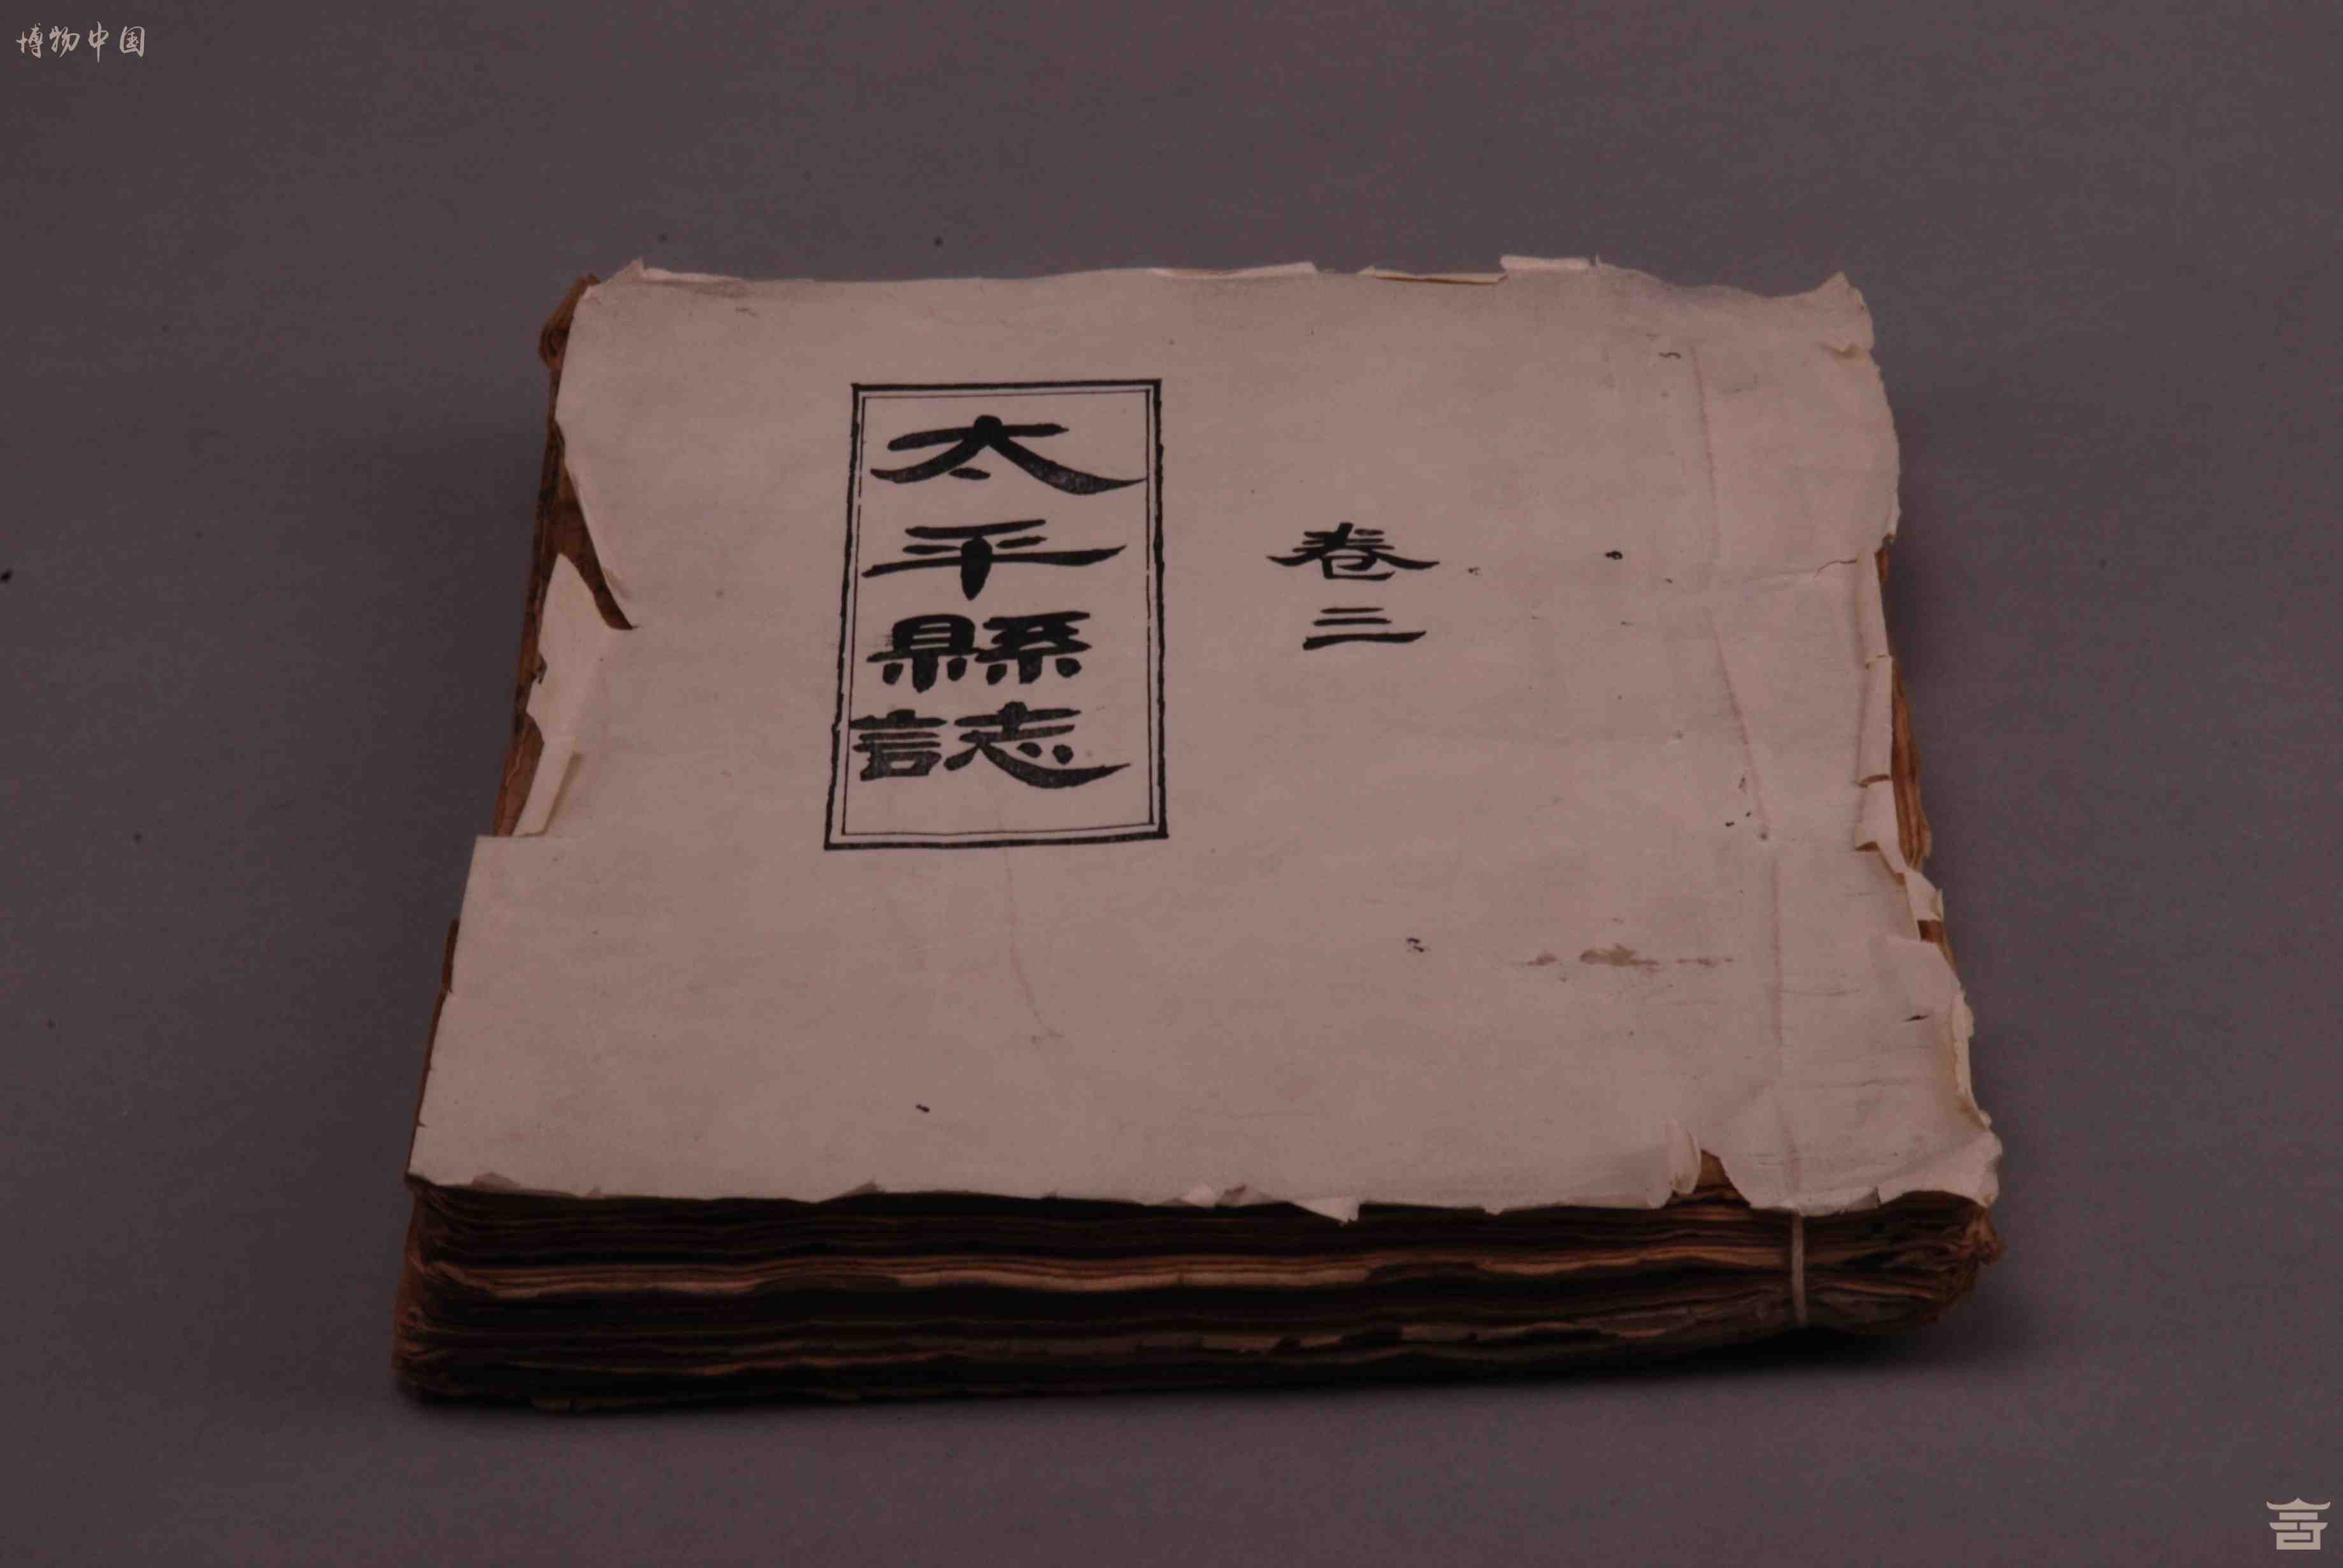 博物中国
卷三
太平縣誌